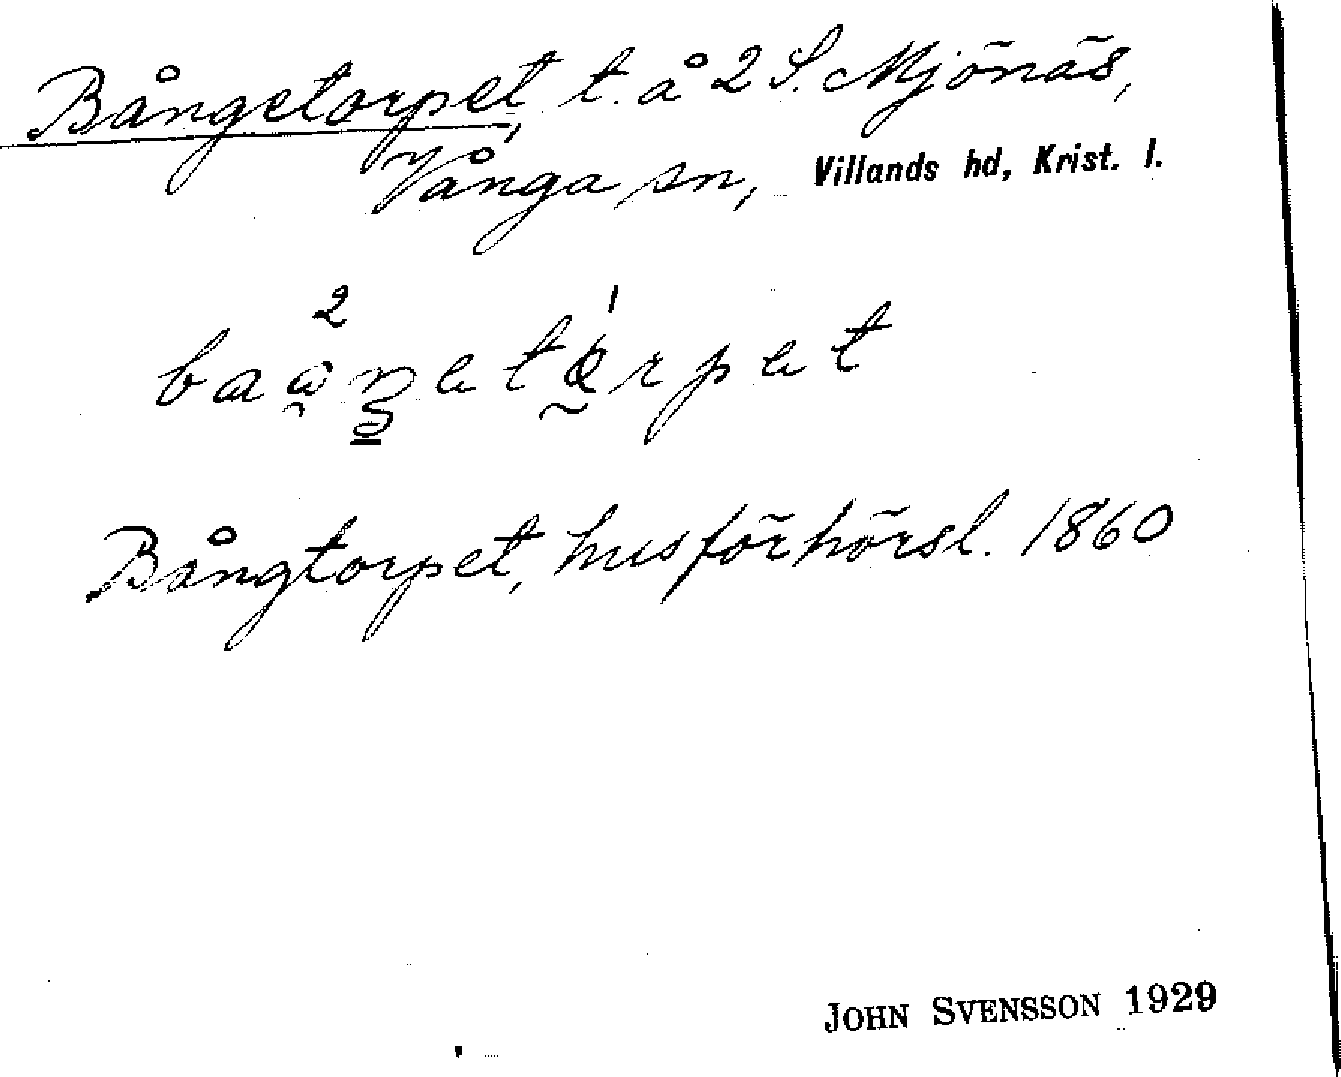 Bångetorpet, t. å 2 S. Mjönäs,
Vånga sn, Villands hd, Krist. l.
2 1
Bångtorpet, husförhörsl. 1860
JOHN SVENSSON 1929